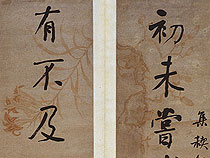 初未嘗
集稧
有不及